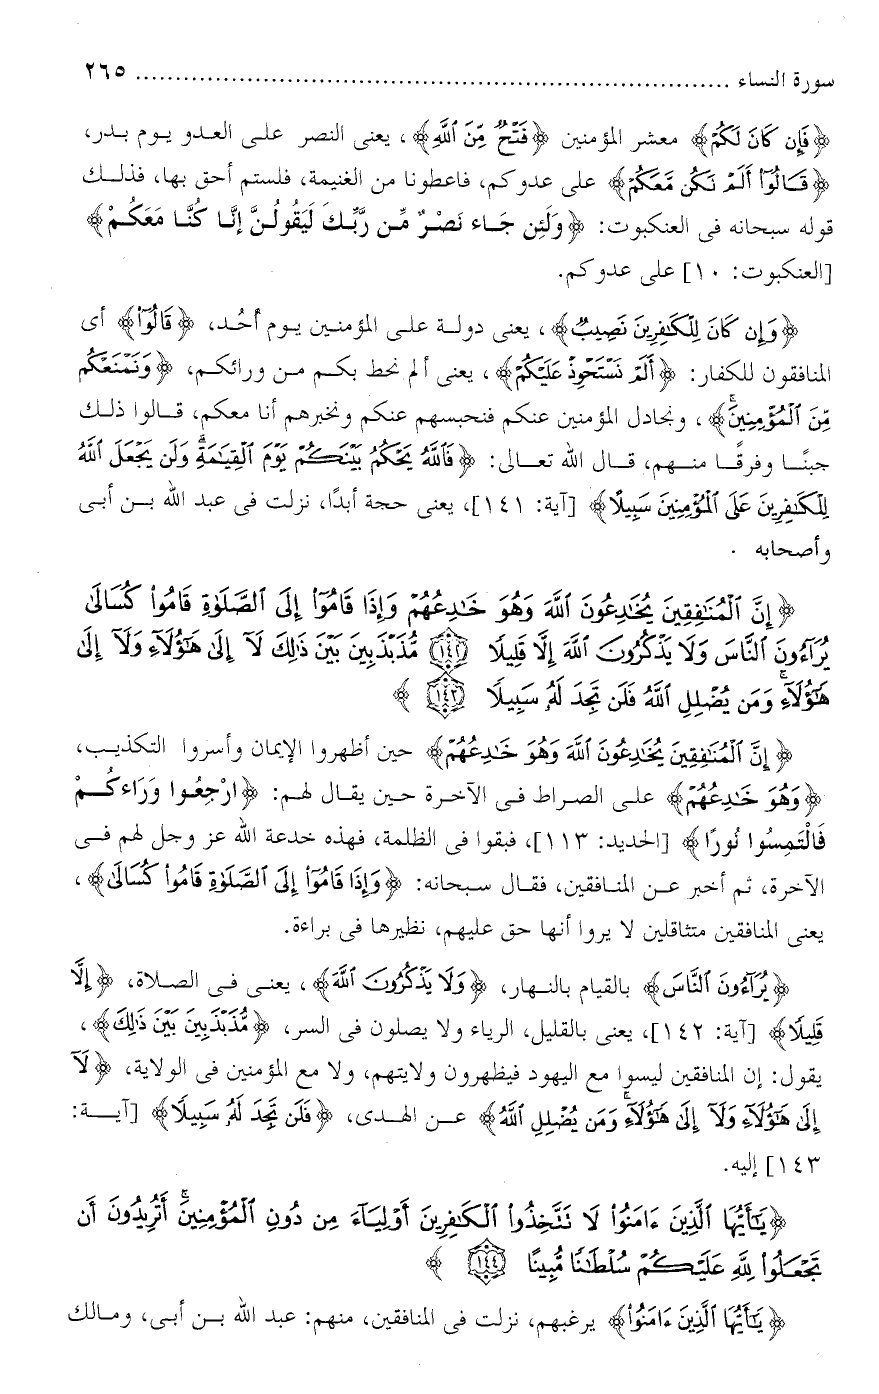 سورة النساء ........................................................................ ٢٦٥
﴿فَإِن كَانَ لَكُمْ﴾ معشر المؤمنين ﴿فَتْحٌ مِّنَ اللَّهِ﴾، يعنى النصر على العدو يوم بدر،
﴿قَالُوٓا أَلَمْ نَكُن مَّعَكُمْ﴾ على عدوكم، فاعطونا من الغنيمة، فلستم أحق بها، فذلك
قوله سبحانه فى العنكبوت: ﴿وَلَئِن جَاء نَصْرٌ مِّن رَّبِّكَ لَيَقُولُنَّ إِنَّا كُنَّا مَعَكُمْ﴾
[العنكبوت: ١٠] على عدوكم.
﴿وَإِن كَانَ لِلْكَٰفِرِينَ نَصِيبٌ﴾، يعنى دولة على المؤمنين يوم أُحُد، ﴿قَالُوٓا﴾ أى
المنافقون للكفار: ﴿أَلَمْ نَسْتَحْوِذْ عَلَيْكُمْ﴾، يعنى ألم نحط بكم من ورائكم، ﴿وَنَمْنَعْكُم
مِّنَ الْمُؤْمِنِينَ﴾، ونجادل المؤمنين عنكم فنحبسهم عنكم ونخبرهم أنا معكم، قالوا ذلك
جبنًا وفرقًا منهم، قال الله تعالى: ﴿فَاللَّهُ يَحْكُمُ بَيْنَكُمْ يَوْمَ الْقِيَٰمَةِ وَلَن يَجْعَلَ اللَّهُ
لِلْكَٰفِرِينَ عَلَى الْمُؤْمِنِينَ سَبِيلًا﴾ [آية: ١٤١]، يعنى حجة أبدًا، نزلت فى عبد الله بن أبى
وأصحابه .
﴿إِنَّ الْمُنَٰفِقِينَ يُخَٰدِعُونَ اللَّهَ وَهُوَ خَٰدِعُهُمْ وَإِذَا قَامُوٓا إِلَى الصَّلَوٰةِ قَامُوا كُسَالَىٰ
يُرَآءُونَ النَّاسَ وَلَا يَذْكُرُونَ اللَّهَ إِلَّا قَلِيلًا ١٤٢ مُّذَبْذَبِينَ بَيْنَ ذَٰلِكَ لَآ إِلَىٰ هَٰٓؤُلَآءِ وَلَآ إِلَىٰ
هَٰٓؤُلَآءِ وَمَن يُضْلِلِ اللَّهُ فَلَن تَجِدَ لَهُ سَبِيلًا ١٤٣ ﴾
﴿إِنَّ الْمُنَٰفِقِينَ يُخَٰدِعُونَ اللَّهَ وَهُوَ خَٰدِعُهُمْ﴾ حين أظهروا الإيمان وأسروا التكذيب،
﴿وَهُوَ خَٰدِعُهُمْ﴾ على الصراط فى الآخرة حين يقال لهم: ﴿ارْجِعُوا وَرَاءكُمْ
فَالْتَمِسُوا نُورًا﴾ [الحديد: ١١٣]، فبقوا فى الظلمة، فهذه خدعة الله عز وجل لهم فى
الآخرة، ثم أخبر عن المنافقين، فقال سبحانه: ﴿وَإِذَا قَامُوٓا إِلَى الصَّلَوٰةِ قَامُوا كُسَالَىٰ﴾،
يعنى المنافقين متثاقلين لا يروا أنها حق عليهم، نظيرها فى براءة.
﴿يُرَآءُونَ النَّاسَ﴾ بالقيام بالنهار، ﴿وَلَا يَذْكُرُونَ اللَّهَ﴾، يعنى فى الصلاة، ﴿إِلَّا
قَلِيلًا﴾ [آية: ١٤٢]، يعنى بالقليل، الرياء ولا يصلون فى السر، ﴿مُّذَبْذَبِينَ بَيْنَ ذَٰلِكَ﴾،
يقول: إن المنافقين ليسوا مع اليهود فيظهرون ولايتهم، ولا مع المؤمنين فى الولاية، ﴿لَآ
إِلَىٰ هَٰٓؤُلَآءِ وَلَآ إِلَىٰ هَٰٓؤُلَآءِ وَمَن يُضْلِلِ اللَّهُ﴾ عن الهدى، ﴿فَلَن تَجِدَ لَهُ سَبِيلًا﴾ [آية:
١٤٣] إليه.
﴿يَٰٓأَيُّهَا الَّذِينَ ءَامَنُوا لَا تَتَّخِذُوا الْكَٰفِرِينَ أَوْلِيَآءَ مِن دُونِ الْمُؤْمِنِينَ أَتُرِيدُونَ أَن
تَجْعَلُوا لِلَّهِ عَلَيْكُمْ سُلْطَٰنًا مُّبِينًا ١٤٤ ﴾
﴿يَٰٓأَيُّهَا الَّذِينَ ءَامَنُوا﴾ يرغبهم، نزلت فى المنافقين، منهم: عبد الله بن أبى، ومالك